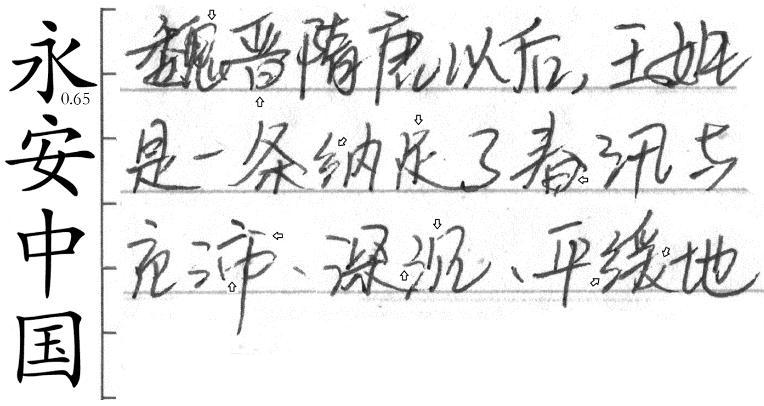 永安中国
0.65
魏晋隋唐以后,王姓
是一条纳足了春汛与
充沛、深沉、平缓地